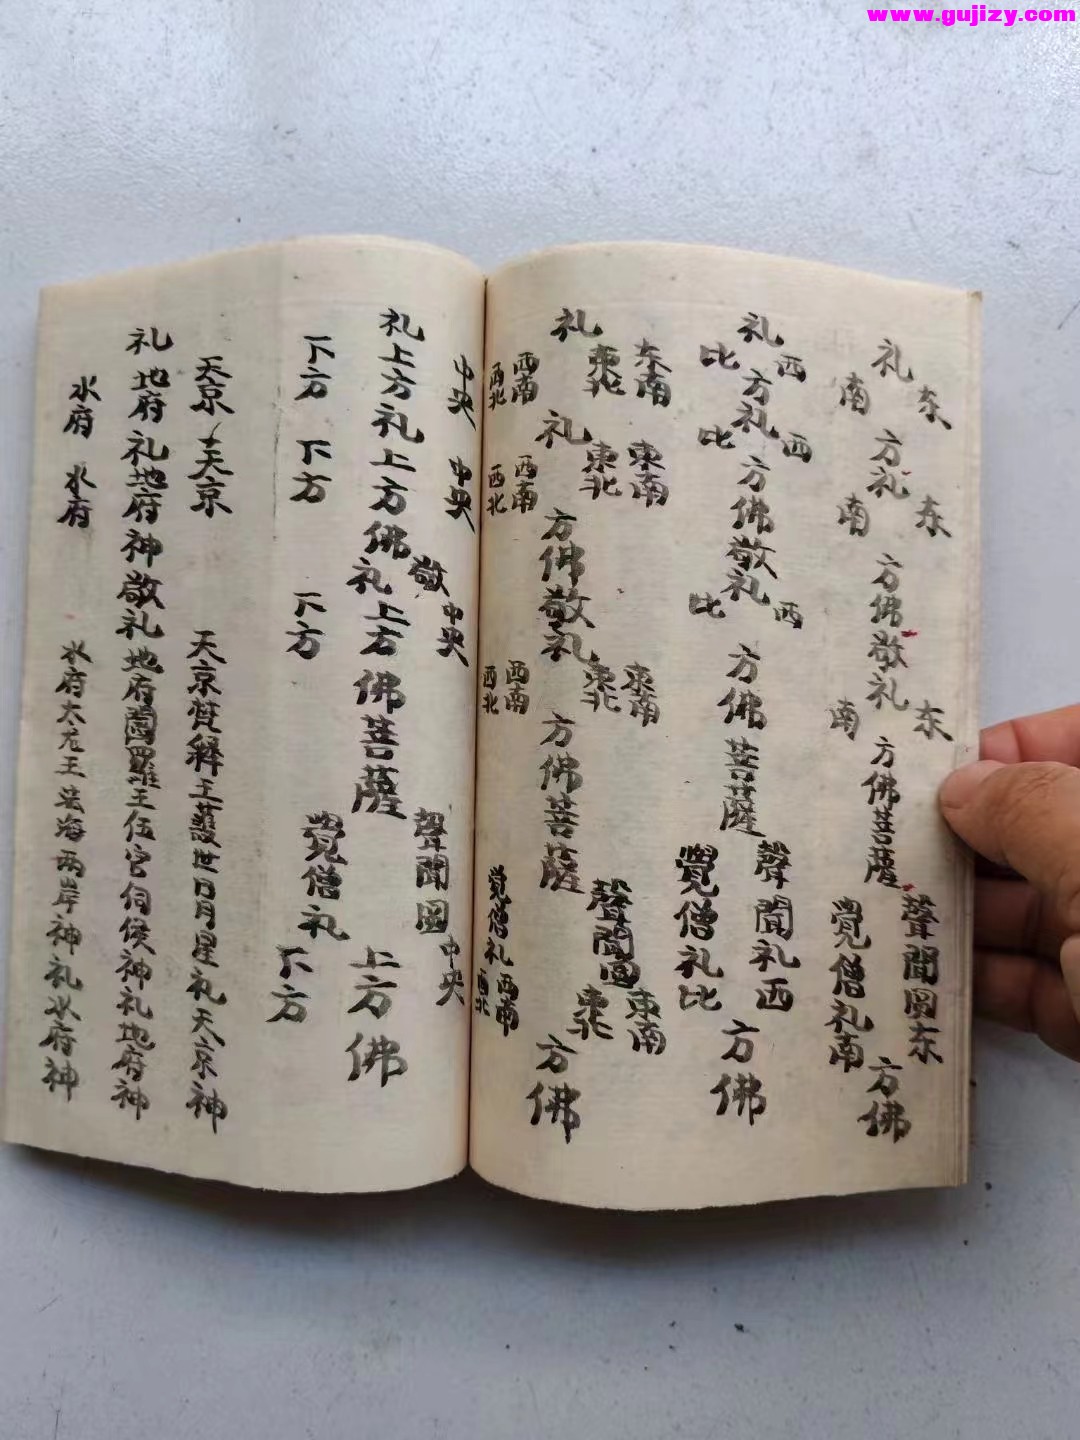 东 东 东 聲聞圓东
礼 方礼 方佛敬礼 方佛菩薩 方佛
南 南 南 覺僧礼南
西 西 西 聲聞礼西
礼方礼方佛敬礼方佛菩薩 方佛
比 比 比 覺僧礼比
东南 東南 東南 聲聞圓東南
東北 東北 東北 東北
礼 礼 方佛敬礼 方佛菩薩 方佛
西南 西南 西南 西南
西北 西北 西北 覺僧礼西北
中央 中央 中央 聲聞圓中央
礼上方礼上方佛敬礼上方佛菩薩 上方佛
下方 下方 下方 覺僧礼下方
天京 天京 天京梵釋王護世日月星礼天京神
礼地府礼地府神敬礼地府閻羅王伍官伺侯神礼地府神
水府 水府 水府太龙王法海两岸神礼水府神
www.gujizy.com